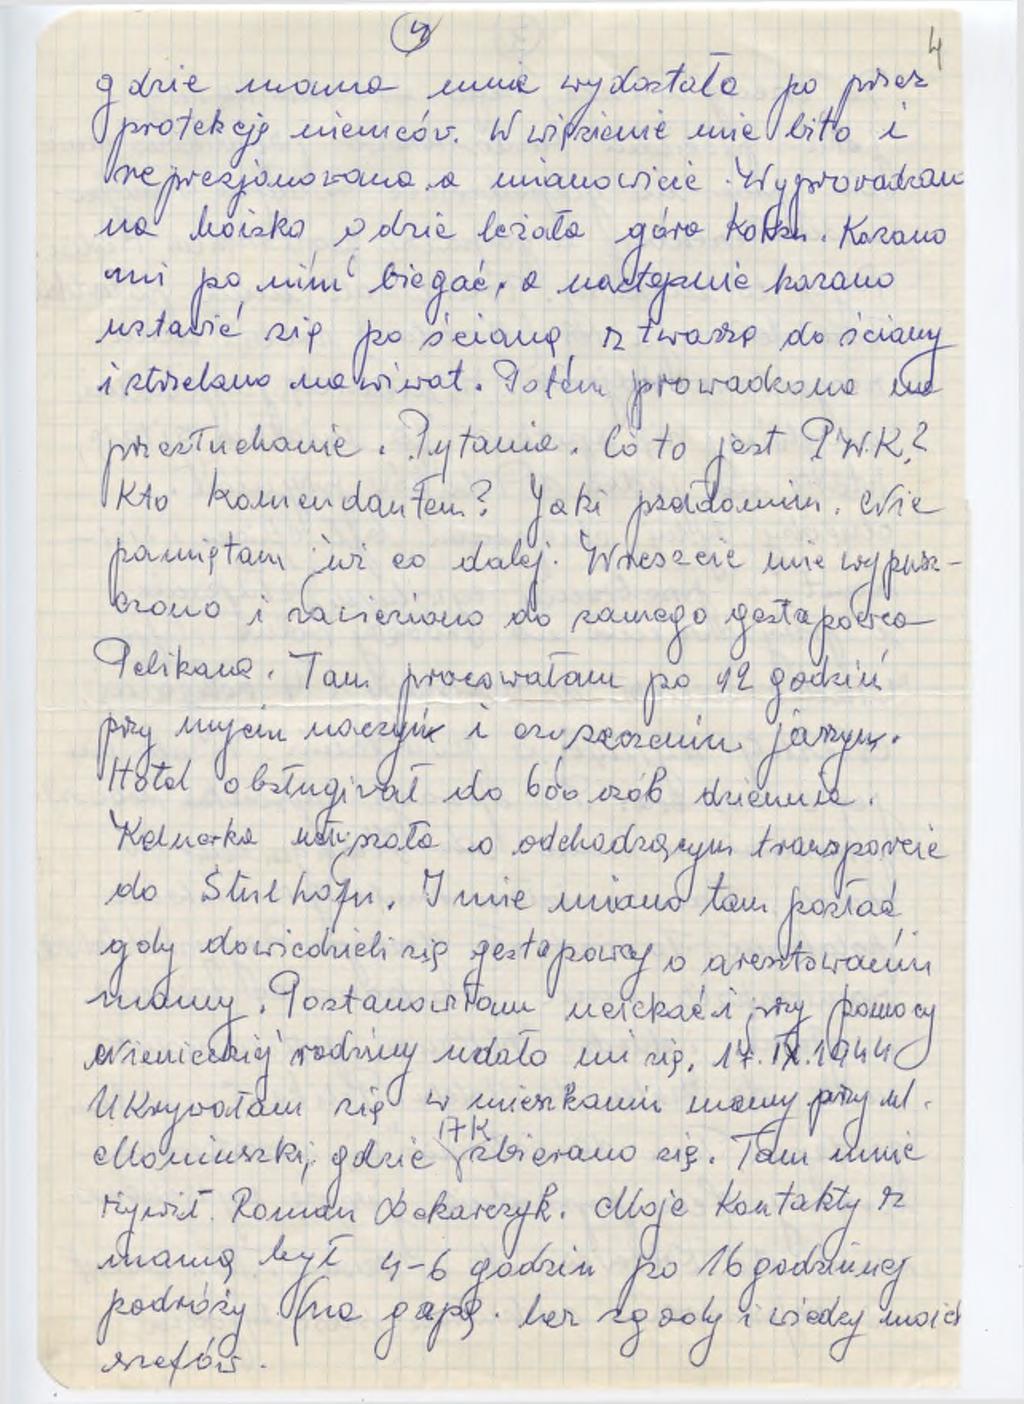 4 4
gdzie mama mnie wydostała po przez
protekcję niemców. W więzienie mie bito i
represjonowano a mianowicie. Wyprowadzano
na boisko gdzie leżała góra koksu. Kazano
mi po nim biegać, a następnie kazano
ustawić się po ścianą z twarzą do ściany
i strzelano na wiwat. Potem prowadzono na
przesłuchanie. Pytania. Co to jest P.W.K.?
Kto komendantem? Jaki pseudonim. Nie
pamiętam już co dalej. Wreszcie mie wypusz-
czono i zawieziono do samego gestapowca
Pelikana. Tam pracowałam po 12 godzin
przy myciu naczyń i czyszczeniu jarzyn.
Hotel obsługiwał do 600 osób dziennie.
Kelnerka usłyszała o odchodzącym transporcie
do Stuthofu. I mie miano tam posłać
gdy dowiedzieli się gestapowcy o aresztowaniu
mamy. Postanowiłam uciekać i przy pomocy
Niemieckiej rodziny udało mi się. 17.IX.1944
Ukrywałam się w mieszkaniu mamy przy ul.
Moniuszki, gdzie 17K zbierano się. Tam mnie
żywił Roman Lekarczyk. Moje kontakty z
mamą był 4-6 godzin po 16 godzinnej
podróży (na gapę. bez zgody i wiedzy moich
szefów.